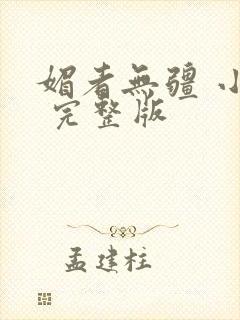 媚者無疆 小
完整版
孟建柱